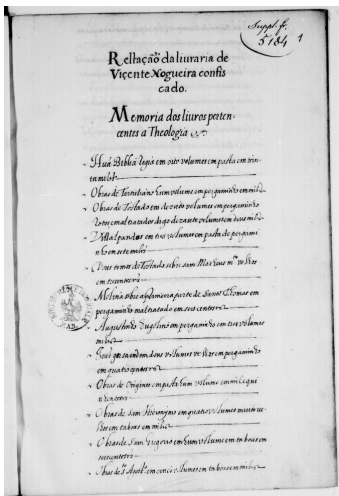 Suppl. fr.
5184 1
Rellação da liuraria de
Viçente Nogueira confis
cado.
Memoria dos liuros perten-
centes a Theologia
Huã Biblia Regia em oito volumes em pasta em trin
ta mil rs
Obras de Tertuliano Eum volume em pergaminho em mil rs
Obras de Tostado em dezaseis volumes em pergaminho
volumes em dous mil rs
Villalpando em tres volumes em pasta de pergami
nho em sete mil rs
Dous tomos de Tostado sobre sam Matheus
em trezentos rs
Molina sobre a primeira parte de Santo Thomas em
pergaminho maltratado em seis centos rs
Augustinho Eugubino em pergaminho em tres volumes
mil rs
em dous volumes velhos em pergaminho
em quatro centos rs
Obras de Origines em pasta Eum volume em mil e qui
nhentos rs
Obras de sam Hieronymo em quatro volumes muito ve
lhos em taboas em mil rs
Obras de sam Gregorio em Eum volume em taboas em
trezentos rs
Obras de S. Agost.º em cinco volumes em taboas em mil rs